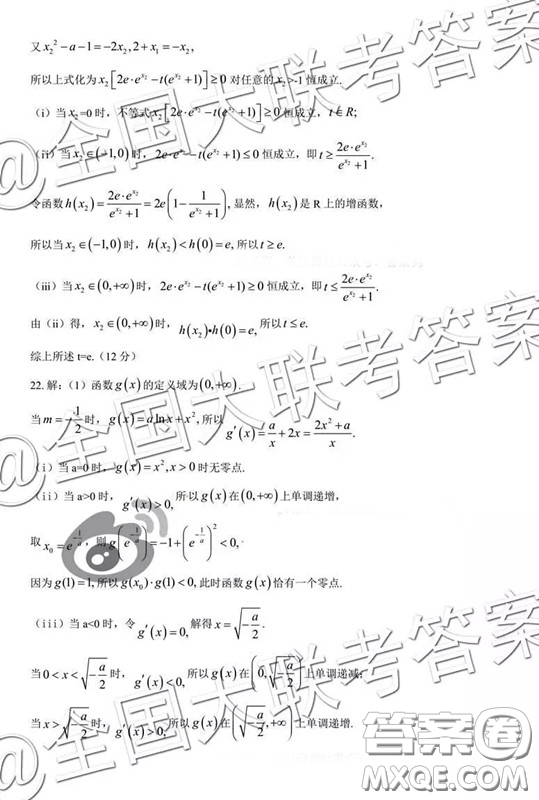 又 x₂² - a - 1 = -2x₂, 2 + x₁ = -x₂,
所以上式化为 x₂[2e·e^{x₂} - t(e^{x₂}+1)] ≥ 0 对任意的 x₂ > -1 恒成立.
(i) 当 x₂=0 时, 不等式 x₂[2e·e^{x₂} - t(e^{x₂}+1)] ≥ 0 恒成立, t∈R;
(ii) 当 x₂∈(-1,0) 时, 2e·e^{x₂} - t(e^{x₂}+1) ≤ 0 恒成立, 即 t ≥ \frac{2e·e^{x₂}}{e^{x₂}+1}.
令函数 h(x₂) = \frac{2e·e^{x₂}}{e^{x₂}+1} = 2e(1 - \frac{1}{e^{x₂}+1}), 显然, h(x₂) 是 R 上的增函数,
所以当 x₂∈(-1,0) 时, h(x₂) < h(0) = e, 所以 t ≥ e.
(iii) 当 x₂∈(0,+∞) 时, 2e·e^{x₂} - t(e^{x₂}+1) ≥ 0 恒成立, 即 t ≤ \frac{2e·e^{x₂}}{e^{x₂}+1}.
由 (ii) 得, x₂∈(0,+∞) 时, h(x₂)•h(0) = e, 所以 t ≤ e.
综上所述 t=e. (12 分)
22.解: (1) 函数 g(x) 的定义域为 (0,+∞).
当 m = -\frac{1}{2} 时, g(x) = a ln x + x², 所以 g′(x) = \frac{a}{x} + 2x = \frac{2x²+a}{x}.
(i) 当 a=0 时, g(x) = x², x > 0 时无零点.
(ii) 当 a>0 时, g′(x) > 0, 所以 g(x) 在 (0,+∞) 上单调递增,
取 x₀ = e^{-\frac{1}{a}}, 则 g(e^{-\frac{1}{a}}) = -1 + (e^{-\frac{1}{a}})² < 0,
因为 g(1) = 1, 所以 g(x₀)·g(1) < 0, 此时函数 g(x) 恰有一个零点.
(iii) 当 a<0 时, 令 g′(x) = 0, 解得 x = \sqrt{-\frac{a}{2}}.
当 0 < x < \sqrt{-\frac{a}{2}} 时, g′(x) < 0, 所以 g(x) 在 (0, \sqrt{-\frac{a}{2}}) 上单调递减;
当 x > \sqrt{-\frac{a}{2}} 时, g′(x) > 0, 所以 g(x) 在 (\sqrt{-\frac{a}{2}}, +∞) 上单调递增.
@全国大联考答案
@全国大联考答案
@全国大联考答案
答案圈
MXQE.COM